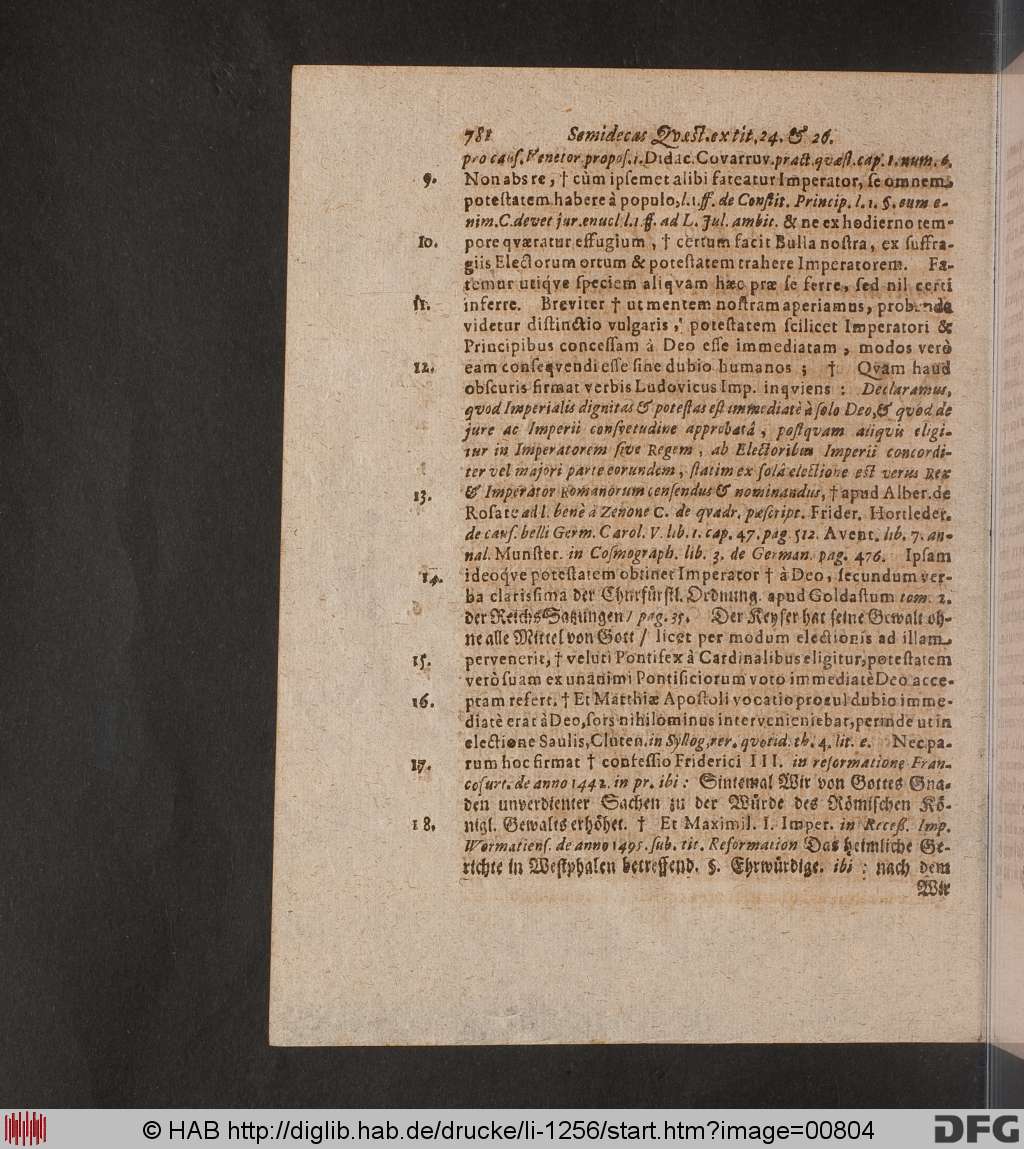 781 Semidecas Qvæst. ex tit. 24. & 26.
pro caus. Venetor. propos. 1. Didac. Covarruv. pract. qvæst. cap. 1. num. 6.
9. Non abs re, † cùm ipsemet alibi fateatur Imperator, se omnem
potestatem habere à populo, l. 1. ff. de Constit. Princip. l. 1. §. cum e-
nim. C. de vet jur. enucl l. 1 ff. ad L. Jul. ambit. & ne ex hodierno tem-
10. pore qværatur effugium, † certum facit Bulla nostra, ex suffra-
giis Electorum ortum & potestatem trahere Imperatorem. Fa-
temur utiqve speciem aliqvam hæc præ se ferre, sed nil certi
11. inferre. Breviter † ut mentem nostram aperiamus, probanda
videtur distinctio vulgaris, potestatem scilicet Imperatori &
Principibus concessam à Deo esse immediatam, modos verò
12. eam conseqvendi esse sine dubio humanos; † Qvam haud
obscuris firmat verbis Ludovicus Imp. inqviens: Declaramus,
qvod Imperialis dignitas & potestas est immediatè à solo Deo, & qvod de
jure ac Imperii consvetudine approbatâ, postqvam aliqvis eligi-
tur in Imperatorem sive Regem, ab Electoribus Imperii concordi-
ter vel majori parte eorundem, statim ex solâ electione est verus Rex
13. & Imperator Romanorum censendus & nominandus, † apud Alber. de
Rosate ad l. benè à Zenone C. de qvadr. præscript. Frider. Hortleder.
de caus. belli Germ. Carol. V. lib. 1. cap. 47. pag. 512. Avent. lib. 7. an-
nal. Munster. in Cosmograph. lib. 3. de German. pag. 476. Ipsam
14. ideoqve potestatem obtinet Imperator † à Deo, secundum ver-
ba clarissima der Churfürstl. Ordnung. apud Goldastum tom. 2.
der Reichs Satzungen / pag. 35. Der Keyser hat seine Gewalt oh-
ne alle Mittel von Gott / licet per modum electionis ad illam
15. pervenerit, † veluti Pontifex à Cardinalibus eligitur, potestatem
verò suam ex unanimi Pontificiorum voto immediatè Deo acce-
16. ptam refert. † Et Matthiæ Apostoli vocatio procul dubio imme-
diatè erat à Deo, sors nihilominus interveniebat, perinde ut in
electione Saulis, Cluten. in Syllog. rer. qvotid. th. 4. lit. e. Nec pa-
17. rum hoc firmat † confessio Friderici III. in reformatione Fran-
cofurt. de anno 1442. in pr. ibi: Sintemal Wir von Gottes Gna-
den unverdienter Sachen zu der Würde des Römischen Kö-
18. nigl. Gewalts erhöhet. † Et Maximil. I. Imper. in Receß. Imp.
Wormatiens. de anno 1495. sub. tit. Reformation Das heimliche Ge-
richte in Westphalen betreffend. §. Ehrwürdige. ibi: nach dem
Wir
© HAB http://diglib.hab.de/drucke/li-1256/start.htm?image=00804
DFG